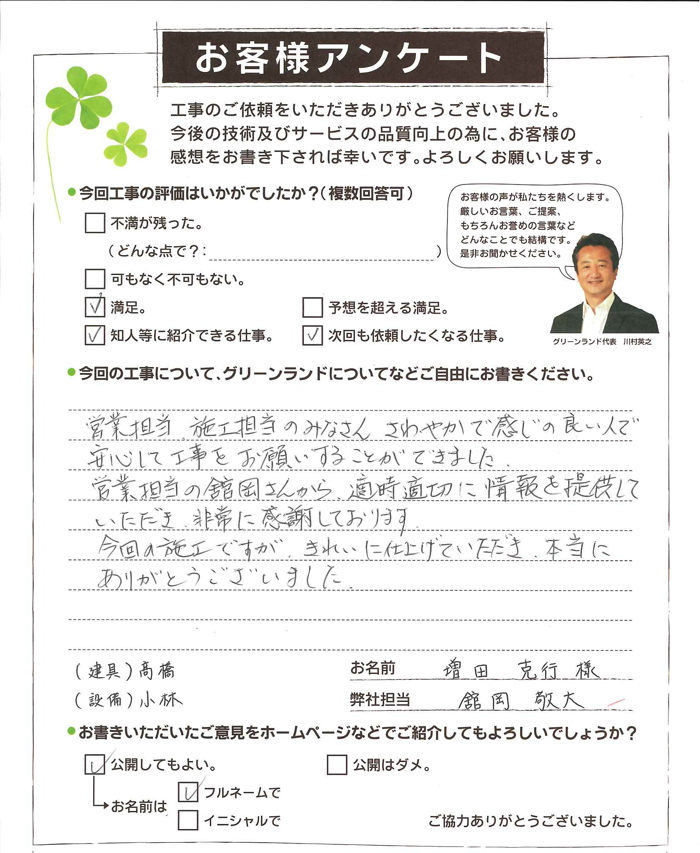 お客様アンケート
工事のご依頼をいただきありがとうございました。
今後の技術及びサービスの品質向上の為に、お客様の
感想をお書き下されば幸いです。よろしくお願いします。
●今回工事の評価はいかがでしたか?(複数回答可)
不満が残った。
(どんな点で?: )
可もなく不可もない。
満足。
予想を超える満足。
知人等に紹介できる仕事。
次回も依頼したくなる仕事。
お客様の声が私たちを熱くします。
厳しいお言葉、ご提案、
もちろんお誉めの言葉など
どんなことでも結構です。
是非お聞かせください。
グリーンランド代表 川村英之
●今回の工事について、グリーンランドについてなどご自由にお書きください。
営業担当、施工担当のみなさん、さわやかで感じの良い人で
安心して工事をお願いすることができました。
営業担当の舘岡さんから、適時適切に情報を提供して
いただき、非常に感謝しております。
今回の施工ですが、きれいに仕上げていただき、本当に
ありがとうございました。
(建具)高橋
(設備)小林
お名前 増田 克行 様
弊社担当 舘岡 敬大
●お書きいただいたご意見をホームページなどでご紹介してもよろしいでしょうか?
公開してもよい。
公開はダメ。
お名前は
フルネームで
イニシャルで
ご協力ありがとうございました。